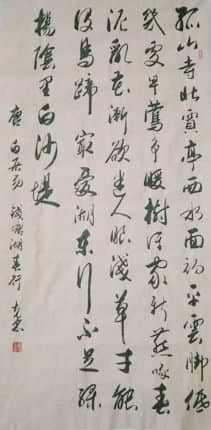 孤山寺北賈亭西水面初平雲脚低
幾處早鶯争暖樹誰家新燕啄春
泥亂花漸欲迷人眼淺草才能
没馬蹄最愛湖東行不足綠
楊陰里白沙堤
唐白居易錢塘湖春行